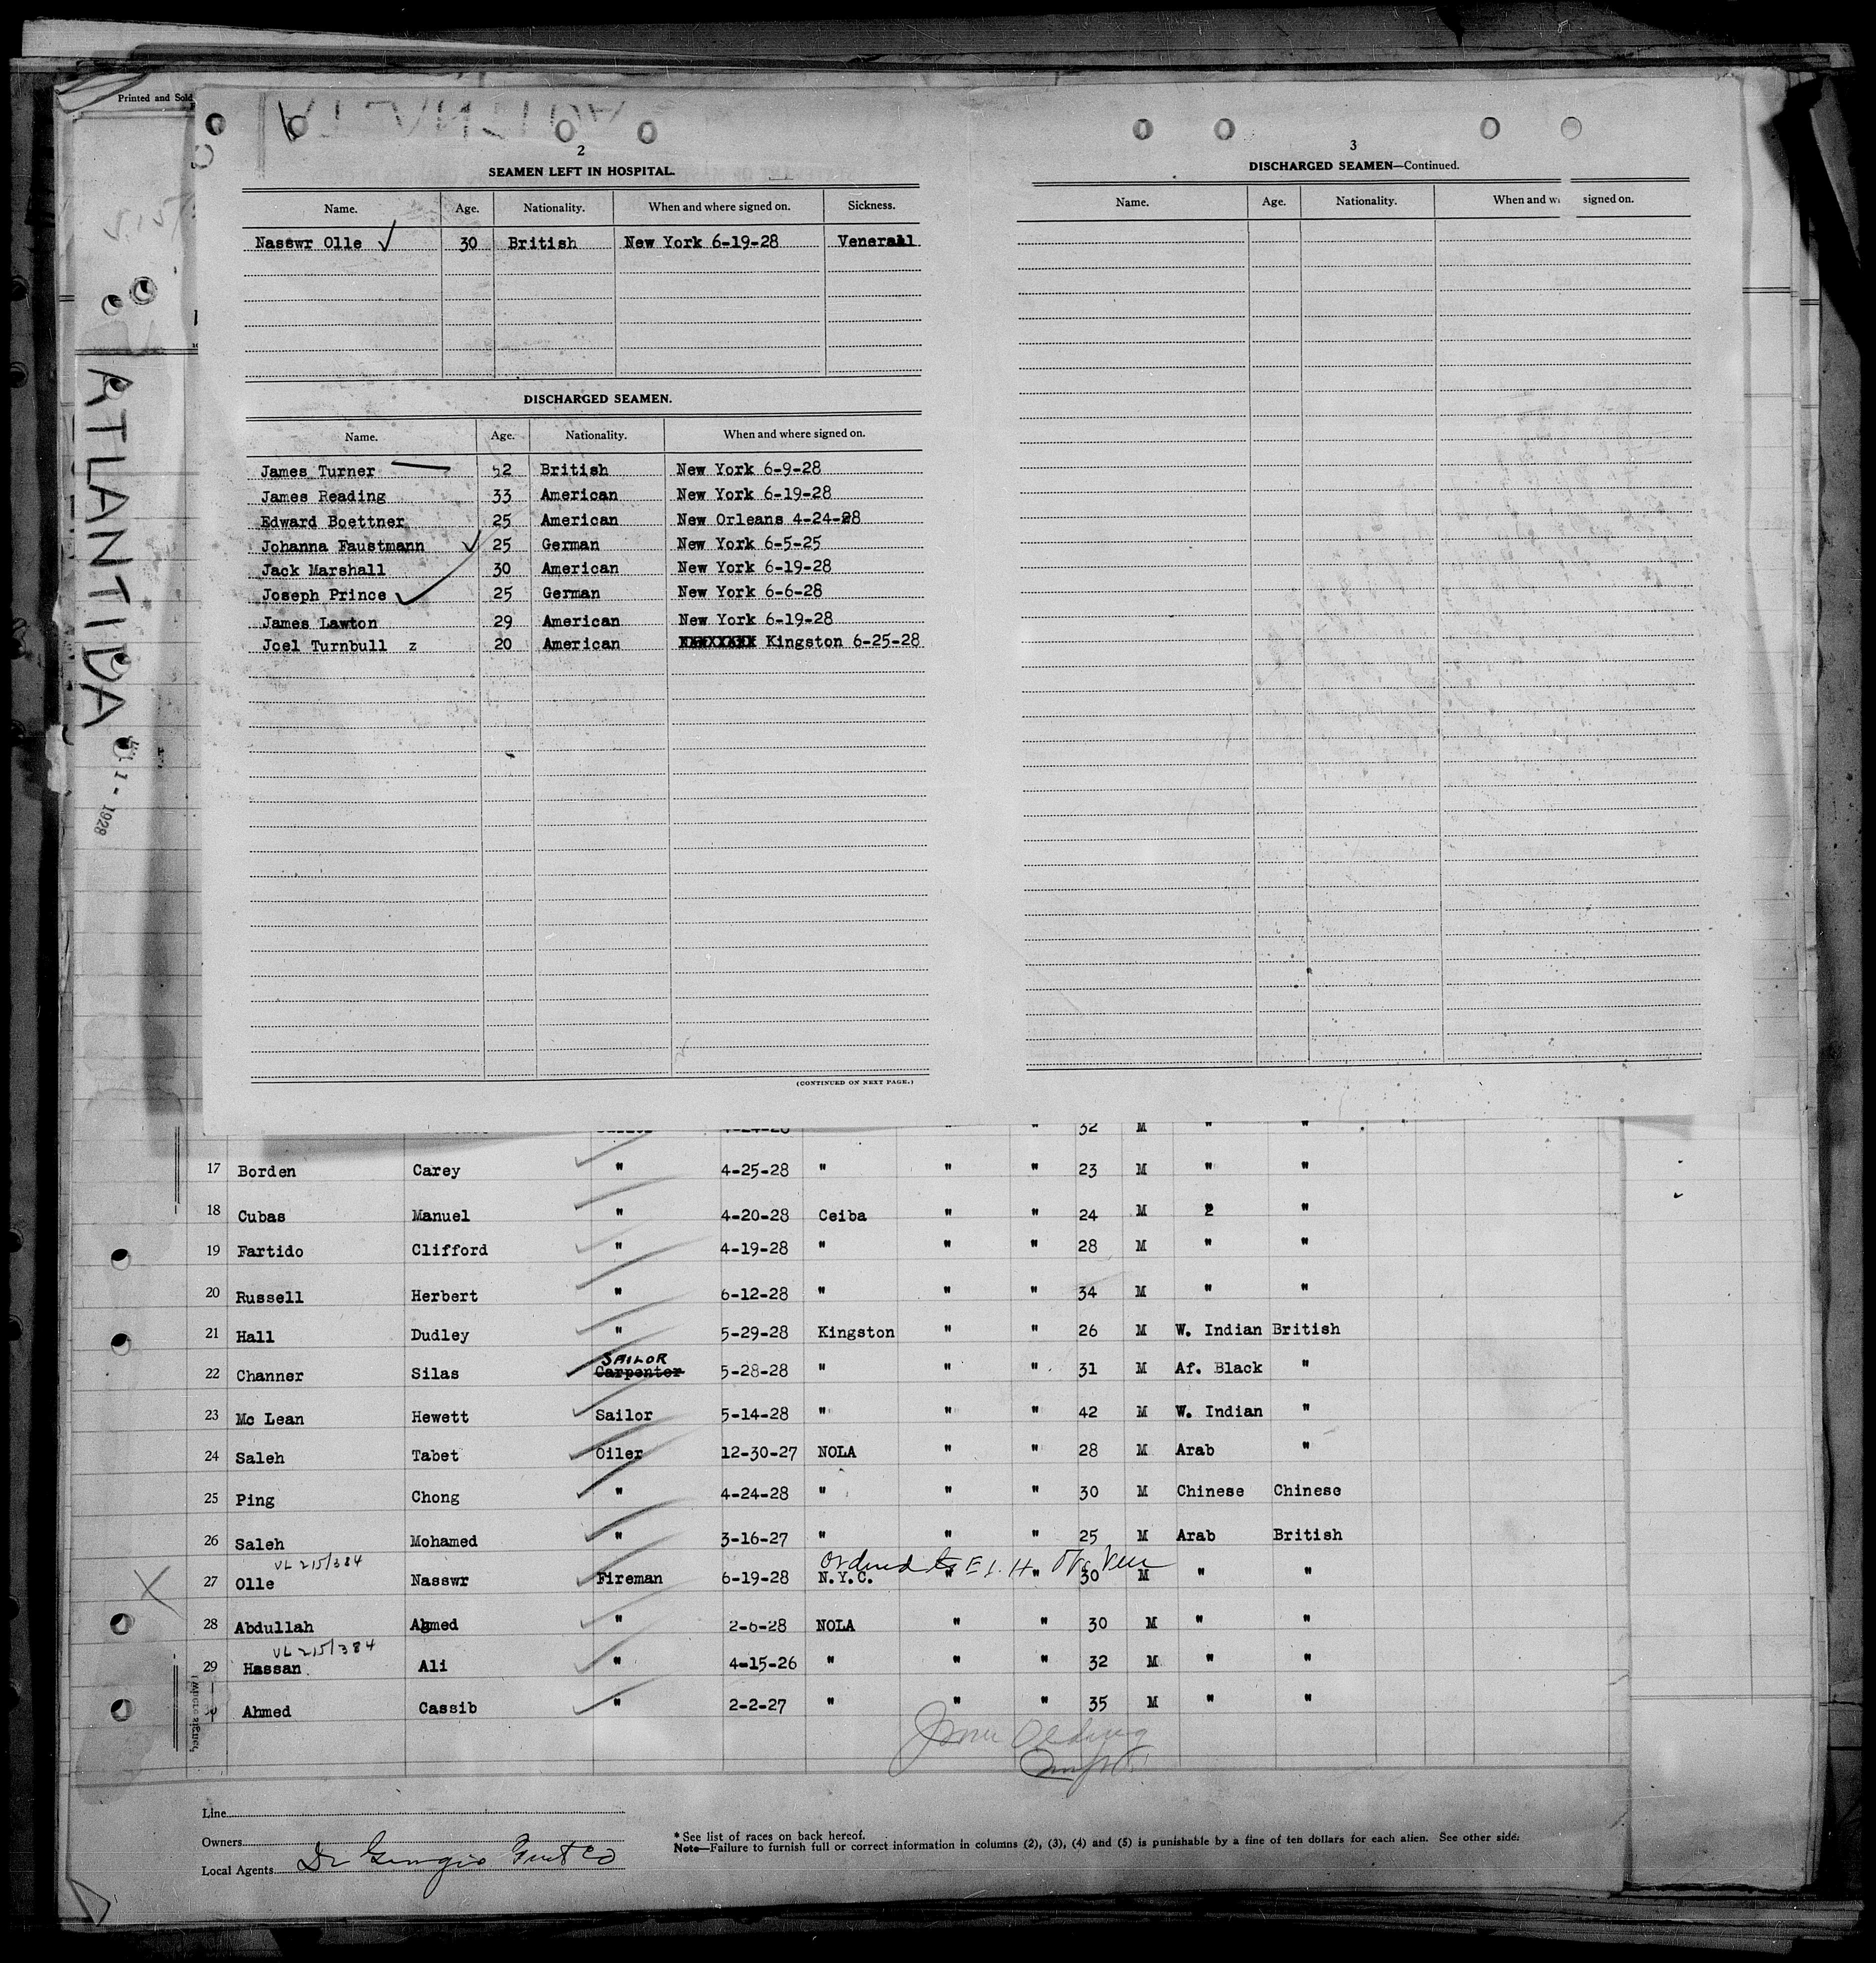 Printed and Sold
ATLANTIDA
1 - 1928
2
SEAMEN LEFT IN HOSPITAL.
Name. Age. Nationality. When and where signed on. Sickness.
Nasswr Olle 30 British New York 6-19-28 Venerall
DISCHARGED SEAMEN.
Name. Age. Nationality. When and where signed on.
James Turner 52 British New York 6-9-28
James Reading 33 American New York 6-19-28
Edward Boettner 25 American New Orleans 4-24-28
Johanna Faustmann 25 German New York 6-5-25
Jack Marshall 30 American New York 6-19-28
Joseph Prince 25 German New York 6-6-28
James Lawton 29 American New York 6-19-28
Joel Turnbull z 20 American Kingston 6-25-28
(CONTINUED ON NEXT PAGE.)
3
DISCHARGED SEAMEN—Continued.
Name. Age. Nationality. When and signed on.
32 M " "
17 Borden Carey " 4-25-28 " " " 23 M " "
18 Cubas Manuel " 4-20-28 Ceiba " " 24 M 2 "
19 Fartido Clifford " 4-19-28 " " " 28 M " "
20 Russell Herbert " 6-12-28 " " " 34 M " "
21 Hall Dudley " 5-29-28 Kingston " " 26 M W. Indian British
SAILOR
22 Channer Silas Carpenter 5-28-28 " " " 31 M Af. Black "
23 Mc Lean Hewett Sailor 5-14-28 " " " 42 M W. Indian "
24 Saleh Tabet Oiler 12-30-27 NOLA " " 28 M Arab "
25 Ping Chong " 4-24-28 " " " 30 M Chinese Chinese
26 Saleh Mohamed " 3-16-27 " " " 25 M Arab British
VL 215/384 Ordered to E.I.H.
27 Olle Nasswr Fireman 6-19-28 N.Y.C. " " 30 M " "
28 Abdullah Ahmed " 2-6-28 NOLA " " 30 M " "
VL 215/384
29 Hassan Ali " 4-15-26 " " " 32 M " "
Ahmed Cassib " 2-2-27 " " " 35 M " "
Line
Owners
Local Agents
* See list of races on back hereof.
Note—Failure to furnish full or correct information in columns (2), (3), (4) and (5) is punishable by a fine of ten dollars for each alien. See other side.